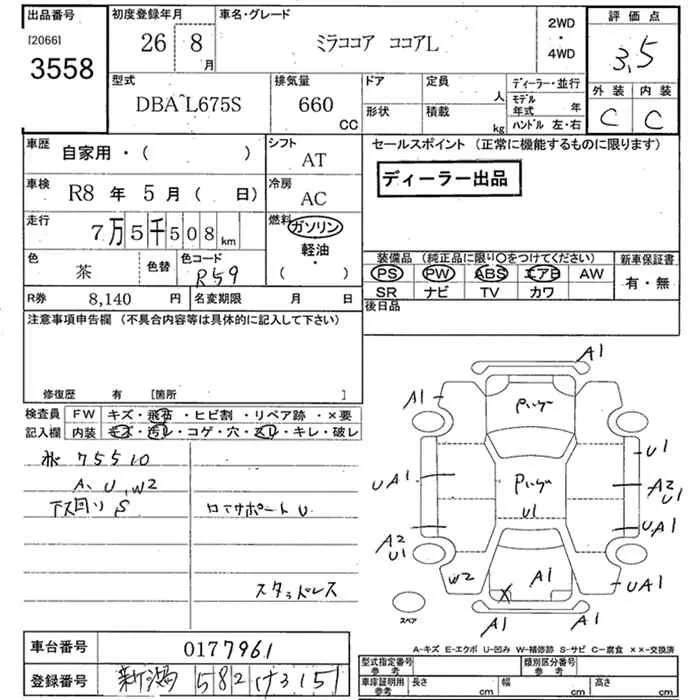 出品番号
[2066]
3558
初度登録年月
26 年 8 月
車名・グレード
ミラココア ココアL
2WD
・
4WD
評価点
3.5
外装 内装
C C
型式
DBA L675S
排気量
660 CC
ドア
形状
定員 人
積載 kg
ディーラー・並行
モデル年式 年
ハンドル 左・右
車歴
自家用・( )
シフト
AT
車検
R8 年 5 月 ( 日)
冷房
AC
走行
7万5千508 km
燃料
ガソリン
軽油
・
( )
色
茶
色替
色コード
R59
R券 8,140 円
名変期限 月 日
セールスポイント (正常に機能するものに限ります)
ディーラー出品
装備品 (純正品に限り○をつけてください)
PS PW ABS エアB AW
SR ナビ TV カワ
新車保証書
有・無
後日品
注意事項申告欄 (不具合内容等は具体的に記入して下さい)
修復歴 有 [箇所 ]
検査員記入欄
FW キズ・飛石・ヒビ割・リペア跡・×要
内装 キズ・汚れ・コゲ・穴・スレ・キレ・破レ
75510
A、U、W2
下回り S
コアサポート U
スタッドレス
A1
A1
U1
UA1
A2
U1
UA1
A2
U1
W2
UA1
U1
A1
A1
A1
スペア
A-キズ E-エクボ U-凹み W-補修跡 S-サビ C-腐食 ××-交換済
車台番号
0177961
登録番号
新潟 582 け3151
型式指定番号
参考
類別区分番号
参考
車庫証明用
参考
長さ cm
幅 cm
高さ cm